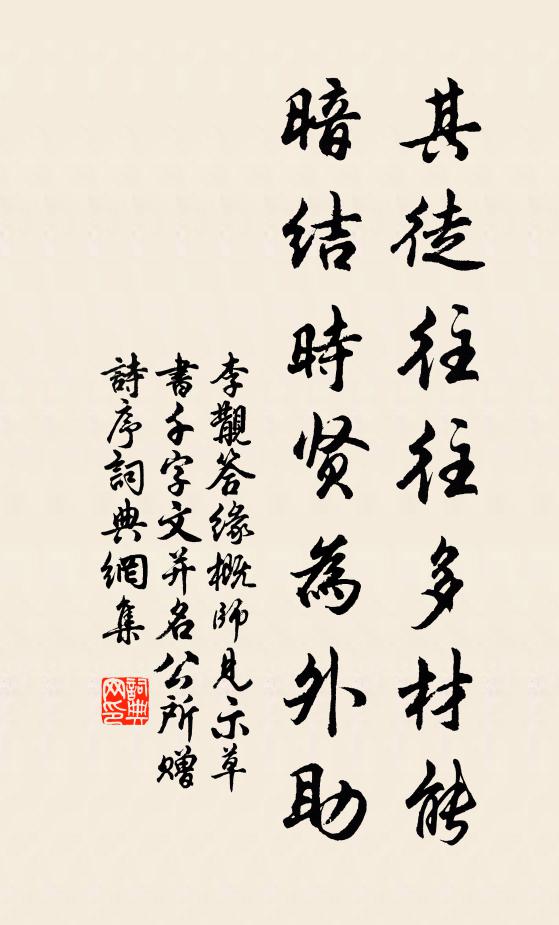 其徒往往多材能
暗结時贤為外助
李覯答緣概師見示草
書千字文并名公所赠
詩序詞典網集
詞典
网印